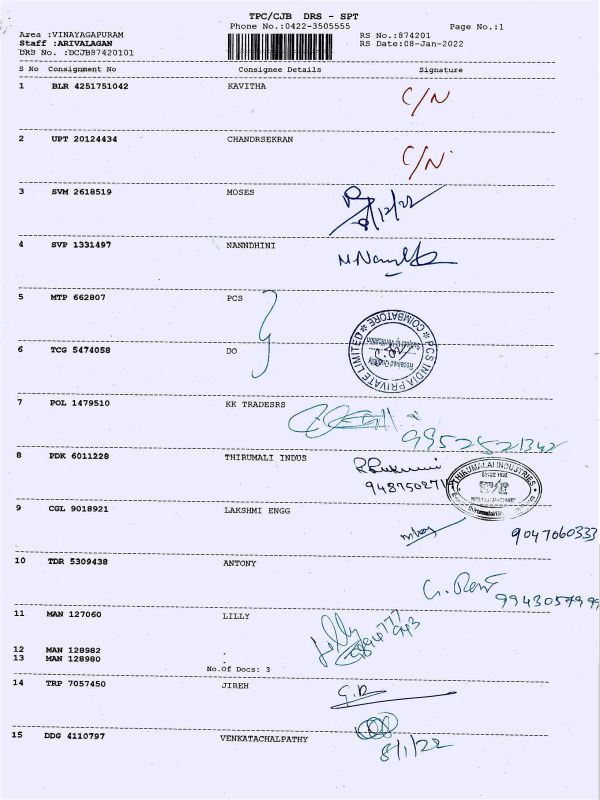 TPC/CJB DRS - SPT
Phone No.:0422-3505555 Page No.:1
Area :VINAYAGAPURAM RS No.:874201
Staff :ARIVALAGAN RS Date:08-Jan-2022
DRS No. :DCJB87420101
S No Consignment No Consignee Details Signature
1 BLR 4251751042 KAVITHA C/N
2 UPT 20124434 CHANDRSEKRAN C/N
3 SVM 2618519 MOSES
4 SVP 1331497 NANNDHINI
5 MTP 662807 PCS
PCS INDIA PRIVATE LIMITED * COIMBATORE *
6 TCG 5474058 DO
7 POL 1479510 KK TRADESRS
9952521342
8 PDK 6011228 THIRUMALI INDUS
THIRUMALAI INDUSTRIES
9 CGL 9018921 LAKSHMI ENGG
9047060333
10 TDR 5309438 ANTONY
11 MAN 127060 LILLY Lilly
12 MAN 128982
13 MAN 128980
No.Of Docs: 3
14 TRP 7057450 JIREH
15 DDG 4110797 VENKATACHALPATHY
8/1/22